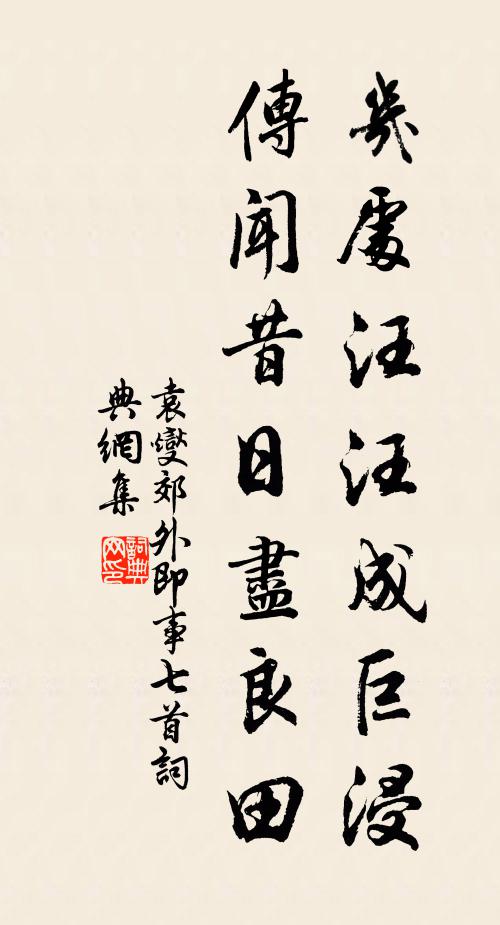 幾處汪汪成巨浸
傳聞昔日盡良田
袁燮郊外即事七首詞
典網集
詞典網印